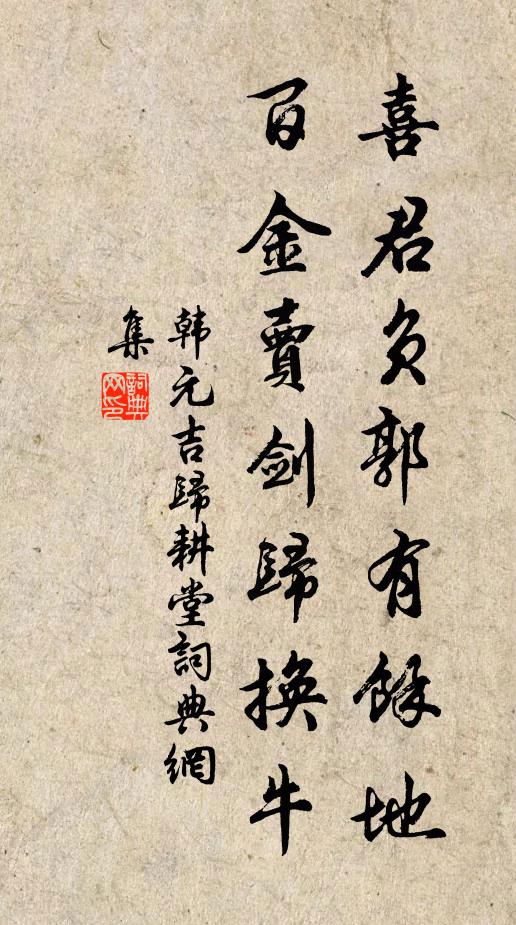 喜君負郭有餘地
百金賣劍歸換牛
韩元吉歸耕堂詞典網
集
詞典网印